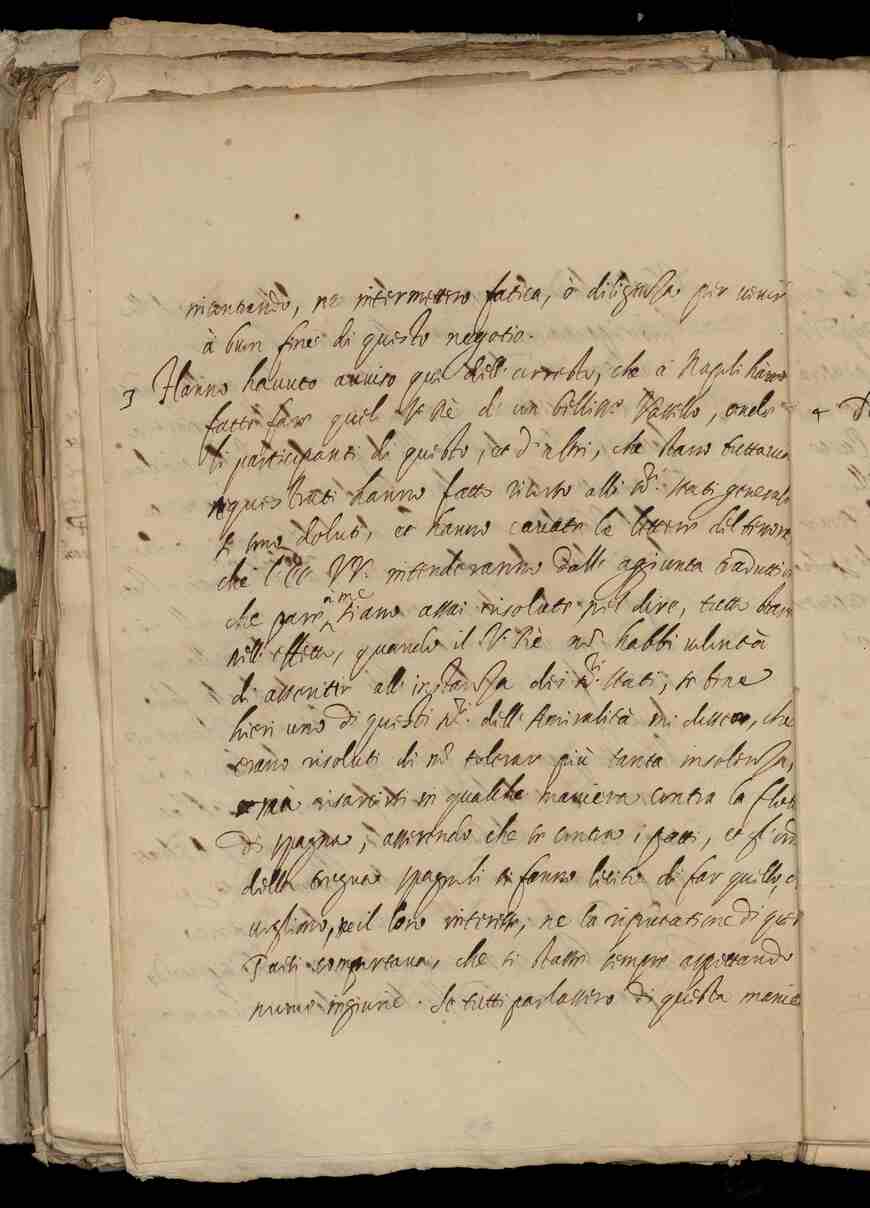 mentando, ne intermettero fatica, ò diligenza per venir
à buon fine di questo negotio.
3 Hanno havuto avviso qui dell'arresto, che à Napoli hanno
fatto far quel V. Rè di un bellissº Vassello, onde
li participanti di questo, et d'altri, che stano tuttavia
sequestrati hanno fatto ricorso alli SSri. Stati generali
si sono doluti, et hanno cavate le lettere del tenore
che l'EE. VV. intenderanno dalle aggiunta tradutti
che pare à me siano assai risolute nel dire, tutto stan
nell'effetto, quando il V. Rè nõ habbi volontà
di assentir all'instanza dei SSri. Stati, se bene
hieri uno di questi SSri. dell'Amiralità mi disse, che
erano risoluti di nõ tolerar più tanta insolenza,
mà risarcirsi in qualche maniera contra la flotta
di spagna, asserendo che se contra i patti, et
della tregua spagnoli si fanno lecito di far quello, che
vogliono, ne il loro interesse, ne la riputatione di questi
Paesi comportava, che si stasse sempre aspettando
nuove ingiurie. Se tutti parlassero di questa manie